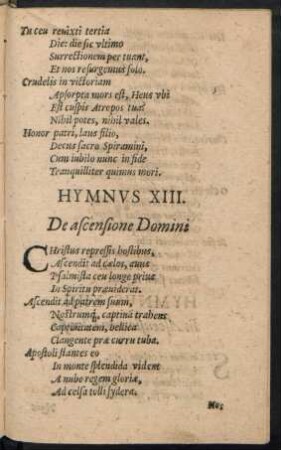 Tu ceu reuixti tertia
Die: die sic vltimo
Surrectionem per tuam,
Et nos resurgemus solo.
Crudelis in victoriam
Apsorpta mors est, Heus vbi
Est cuspis Atropos tua?
Nihil potes, nihil vales.
Honor patri, laus filio,
Decus sacro Spiramini,
Cum iubilo nunc in fide
Tranquilliter quimus mori.
HYMNVS XIII.
De ascensione Domini
CHristus repressis hostibus,
Ascendit ad cœlos, auus
Psalmista ceu longe prius
In Spiritu præuiderat.
Ascendit ad patrem suum,
Nostrumq́;, captiuã trahens
Captiuitatem, bellica
Clangente præ curru tuba.
Apostoli stantes eo
In monte splendida vident
A nube regem gloriæ,
Ad celsa tolli sydera.
Nos